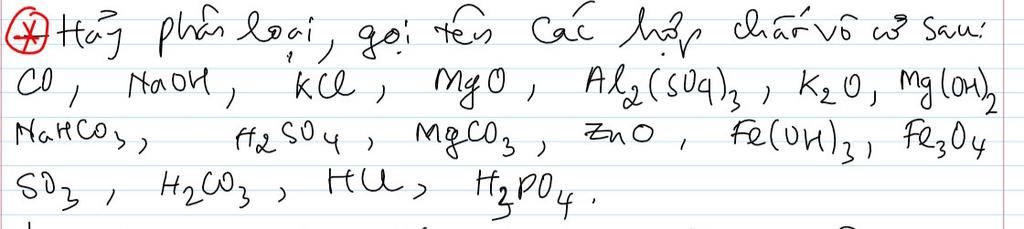 * Hãy phân loại, gọi tên các hợp chất vô cơ sau:
CO, NaOH, KCl, MgO, Al2(SO4)3, K2O, Mg(OH)2
NaHCO3, H2SO4, MgCO3, ZnO, Fe(OH)3, Fe3O4
SO3, H2CO3, HCl, H3PO4.